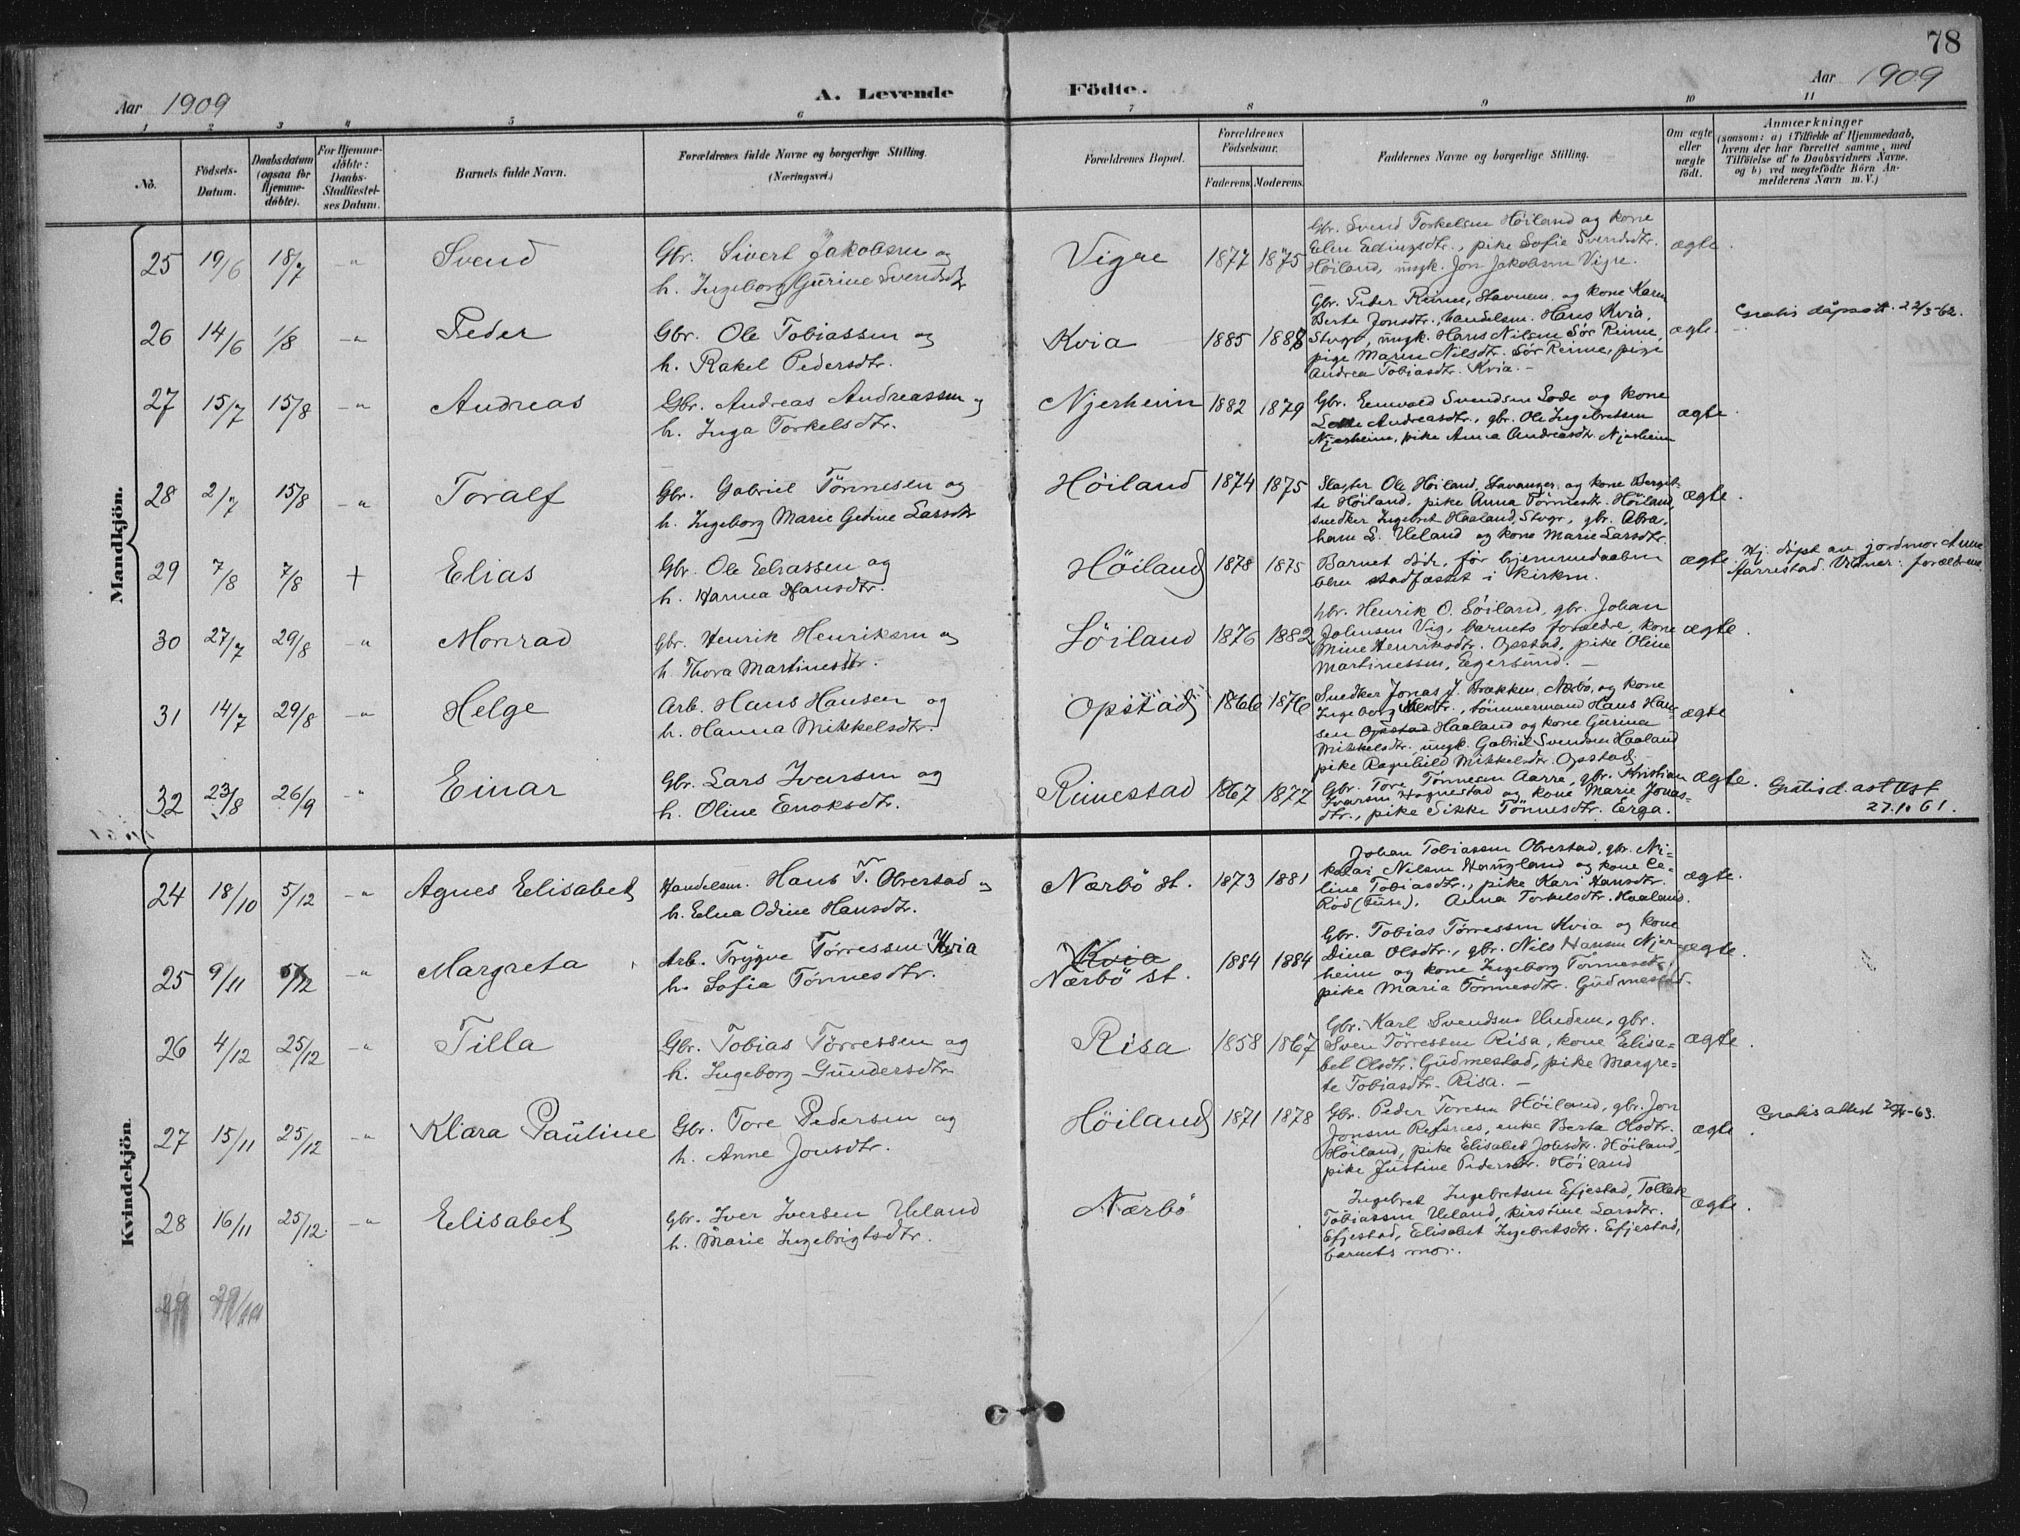 78
Aar 1909
A. Levende
Födte.
Aar 1909
1 2 3 4 5 6 7 8 9 10 11
No.
Födsels-
Datum.
Daabsdatum
(ogsaa for
Hjemme-
döbte).
For Hjemme-
döbte:
Daabs-
Stadfæstel-
ses Datum.
Barnets fulde Navn.
Forældrenes fulde Navne og borgerlige Stilling.
(Næringsvei.)
Forældrenes Bopæl.
Forældrenes
Födselsaar.
Faderens. Moderens.
Faddernes Navne og borgerlige Stilling.
Om ægte
eller
uægte
födt.
Anmærkninger
(saasom: a) i Tilfælde af Hjemmedaab,
hvem der har forrettet samme, med
Tilföielse af to Daabsvidners Navne.
og b) ved uægtefödte Börn An-
melderens Navn m. V.)
Mandkjön.
25 19/6 18/7 -"- Svend
Gbr. Sivert Jakobsen og
h. Ingeborg Gurine Svendsdtr
Vigre 1877 1875
Gbr. Svend Torkelsen Höiland og kone
Elen Edingsdtr., pike Sofie Svendsdtr.
Höiland, ungk. Jon Jakobsen Vigre.
ægte.
26 14/6 1/8 -"- Peder
Gbr. Ole Tobiassen og
h. Rakel Pedersdtr.
Kvia 1885 1888
Gbr. Peder Rinne, Stavnem. og kone Karen
Berte Jonsdtr., handelsm. Hans Kvia,
Stvgr, ungk. Hans Nilsen Sör Rinne,
pige Maren Nilsdtr. Sör Rinne, pige
Andrea Tobiasdtr. Kvia. –
ægte.
Gratis dåpsatt. 22/3-62.
27 15/7 15/8 -"- Andreas
Gbr. Andreas Andreassen og
h. Inga Torkelsdtr.
Njerheim 1882 1879
Gbr. Enevald Svendsen Lode og kone
Lotte Andreasdtr., gbr. Ole Ingebretsen
Njerheim, pike Anna Andreasdtr. Njerheim
ægte.
28 2/7 15/8 -"- Toralf
Gbr. Gabriel Tönnesen og
h. Ingeborg Marie Gedine Larsdtr
Höiland 1874 1875
Slagter Ole Höiland, Stavanger, og kone Bergit-
te Höiland, pike Anna Tönnesdtr. Höiland,
snedker Ingebret Haaland, Stvgr, gbr. Abra-
ham L. Ueland og kone Marie Larsdtr.
ægte.
29 7/8 7/8 + Elias
Gbr. Ole Eliassen og
h. Hanna Hansdtr.
Höiland 1878 1875
Barnet döde, för hjemmedaaben
blev stadfæstet i kirken.
ægte.
Hj. döpt av jordmor Anne
Aarrestad. Vidner: forældrene.
30 27/7 29/8 -"- Monrad
Gbr. Henrik Henriksen og
h. Thora Martinesdtr.
Löiland 1876 1882
Gbr. Henrik O. Löiland, gbr. Johan
Johnsen Vig, barnets forældre, kone
Mine Henriksdtr. Opstad, pike Oline
Martinessen, Egersund. –
ægte.
31 14/7 29/8 -"- Helge
Arb. Hans Hansen og
h. Hanna Mikkelsdtr.
Opstad 1866 1876
Snedker Jonas J. Brækken, Nærbö, og kone
Ingeborg Olsdtr., tömmermand Hans Han-
sen Opstad Haaland og kone Gurina
Mikkelsdtr., ungk. Gabriel Svendsen Haaland
pike Ragnhild Mikkelsdtr. Opstad.
ægte
32 23/8 26/9 -"- Einar
Gbr. Lars Ivarsen og
h. Oline Enoksdtr.
Rimestad 1867 1877
Gbr. Tore Tönnesen Aarre, gbr. Kristian
Ivarsen Hognestad og kone Marie Jonas-
dtr., pike Sikke Tönnesdtr. Erga.
ægte.
Gratis d. attest
27.10.61.
Kvindekjön.
24 18/10 5/12 -"- Agnes Elisabet
Handelsm. Hans T. Obrestad og
h. Elna Odine Hansdtr.
Nærbö st. 1873 1881
Johan Tobiassen Obrestad, gbr. Ni-
kolai Nilsen Haugland og kone Ce-
line Tobiasdtr., pike Kari Hansdtr.
Röd (Fuse), Anna Torkelsdtr. Haaland.
ægte.
25 9/11 5/12 -"- Margreta
Arb. Trygve Törressen Kvia
h. Sofie Tönnesdtr.
Kvia
Nærbö st. 1884 1884
Gbr. Tobias Törressen Kvia og kone
Dina Olsdtr., gbr. Nils Hansen Njer-
heim og kone Ingeborg Tönnesdtr.,
pike Maria Tönnesdtr. Gudmestad.
ægte.
26 4/12 25/12 -"- Tilla
Gbr. Tobias Törressen og
h. Ingeborg Gundersdtr
Risa 1858 1867
Gbr. Karl Svendsen Undem, gbr.
Sven Törressen Risa, kone Elisa-
bet Olsdtr. Gudmestad, pike Margre-
te Tobiasdtr. Risa. –
ægte.
27 15/11 25/12 -"- Klara Pauline
Gbr. Tore Pedersen og
h. Anne Jonsdtr.
Höiland 1871 1878
Gbr. Peder Toresen Höiland, gbr. Jon
Jonsen Refsnes, enke Berta Olsdtr.
Höiland, pike Elisabet Jonsdtr. Höiland,
pike Justine Pedersdtr. Höiland
ægte.
Gratis attest -63.
28 16/11 25/12 -"- Elisabet
Gbr. Iver Iversen Ueland
h. Marie Ingebrigtsdtr.
Nærbö
Ingebret Ingebretsen Efjestad, Tollak
Tobiassen Ueland, Kirstine Larsdtr.
Efjestad, Elisabet Ingebretsdtr. Efjestad,
barnets mor.
ægte.
29